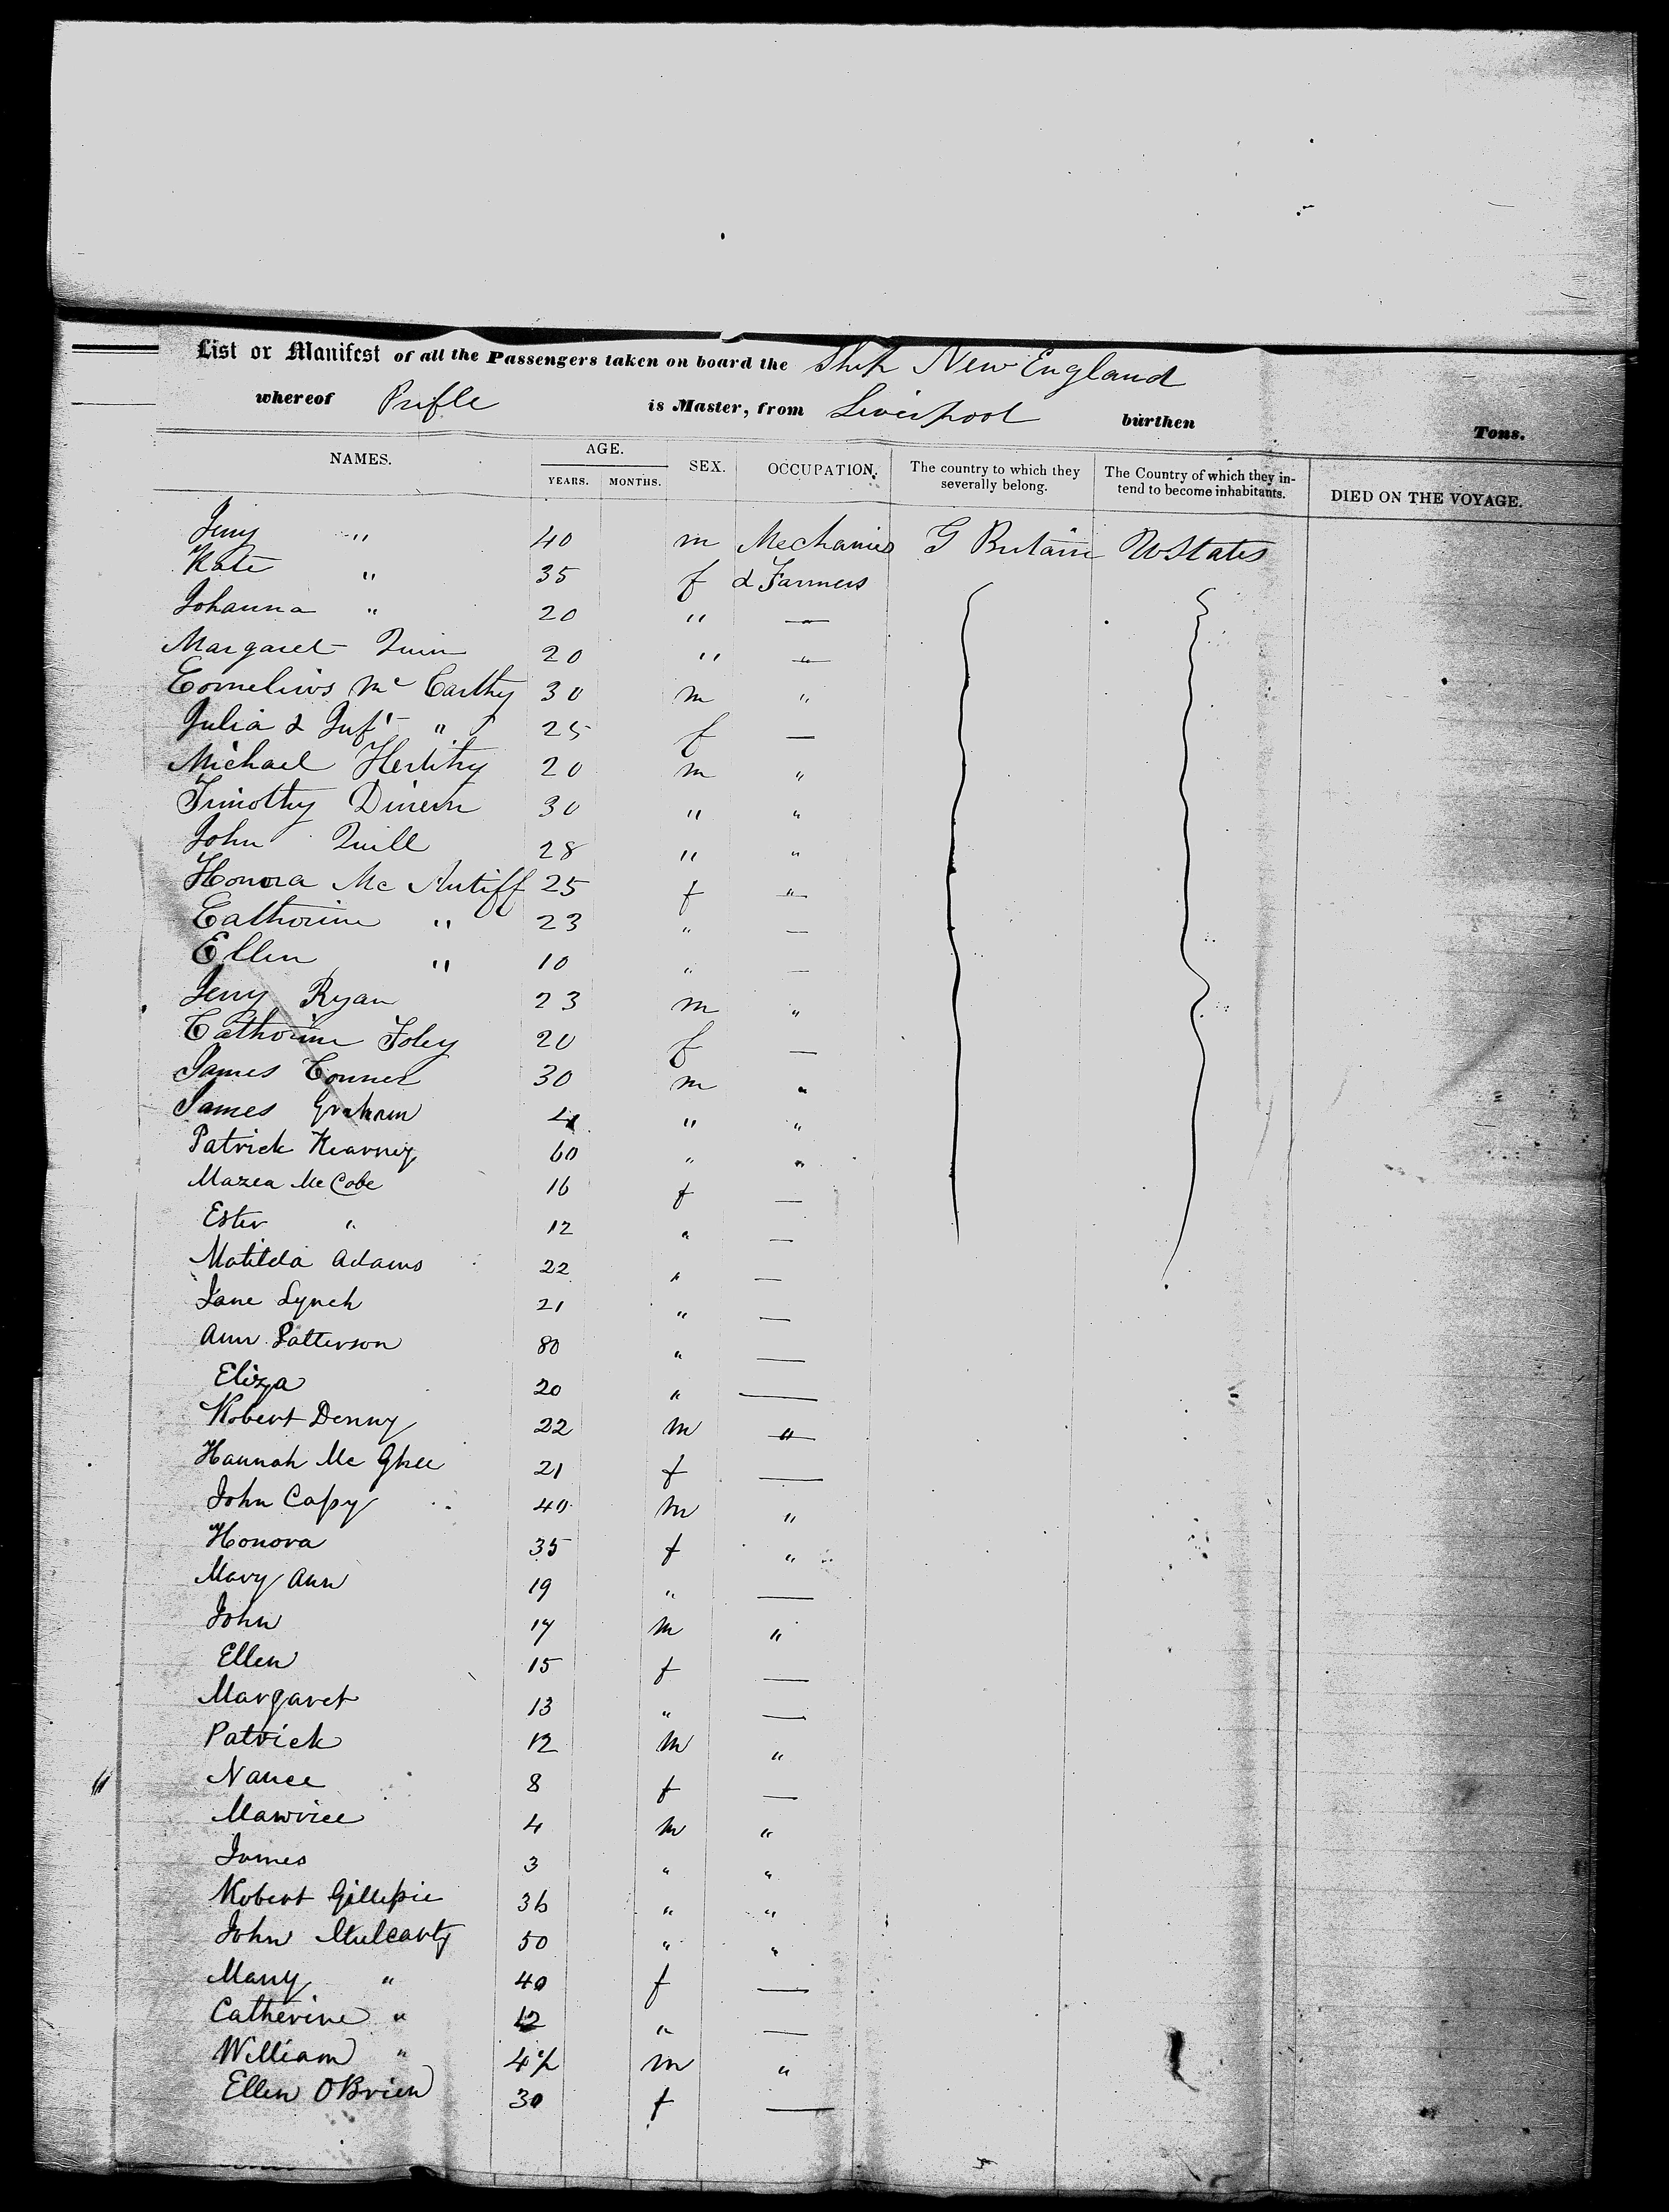 List or Manifest of all the Passengers taken on board the Ship New England
whereof is Master, from Liverpool burthen Tons.
NAMES. AGE. YEARS. MONTHS. SEX. OCCUPATION. The country to which they severally belong. The Country of which they intend to become inhabitants. DIED ON THE VOYAGE.
Jerry " 40 m Mechanics G Britain U States
Kate " 35 f & Farmers
Johanna " 20 " —
Margaret Quin 20 " "
Cornelius Mc Carthy 30 m "
Julia & Inft " 25 f —
Michael Herlihy 20 m "
Timothy Dineen 30 " "
John Quill 28 " "
Honora Mc Autiff 25 f "
Catherine " 23 " —
Ellen " 10 " —
Jerry Ryan 23 m "
Catherine Foley 20 f —
James Conner 30 m "
James Graham " "
Patrick Kearney 60 " "
Mc Cabe 16 f —
Ester " 12 " —
Matilda Adams 22 " —
Jane Lynch 21 " —
Ann Patterson 80 " —
Eliza 20 " —
Robert Denny 22 m "
Hannah Mc Ghee 21 f —
John Capy 40 m "
Honora 35 f "
Mary Ann 19 " —
John 17 m "
Ellen 15 f —
Margaret 13 " —
Patrick 12 m "
Nance 8 f —
Mawrice 4 m "
James 3 " "
Robert Gillepie 36 " "
John Mulcarty 50 " "
Mary " 40 f —
Catherine " 12 " —
William " m "
Ellen OBrien 30 f —